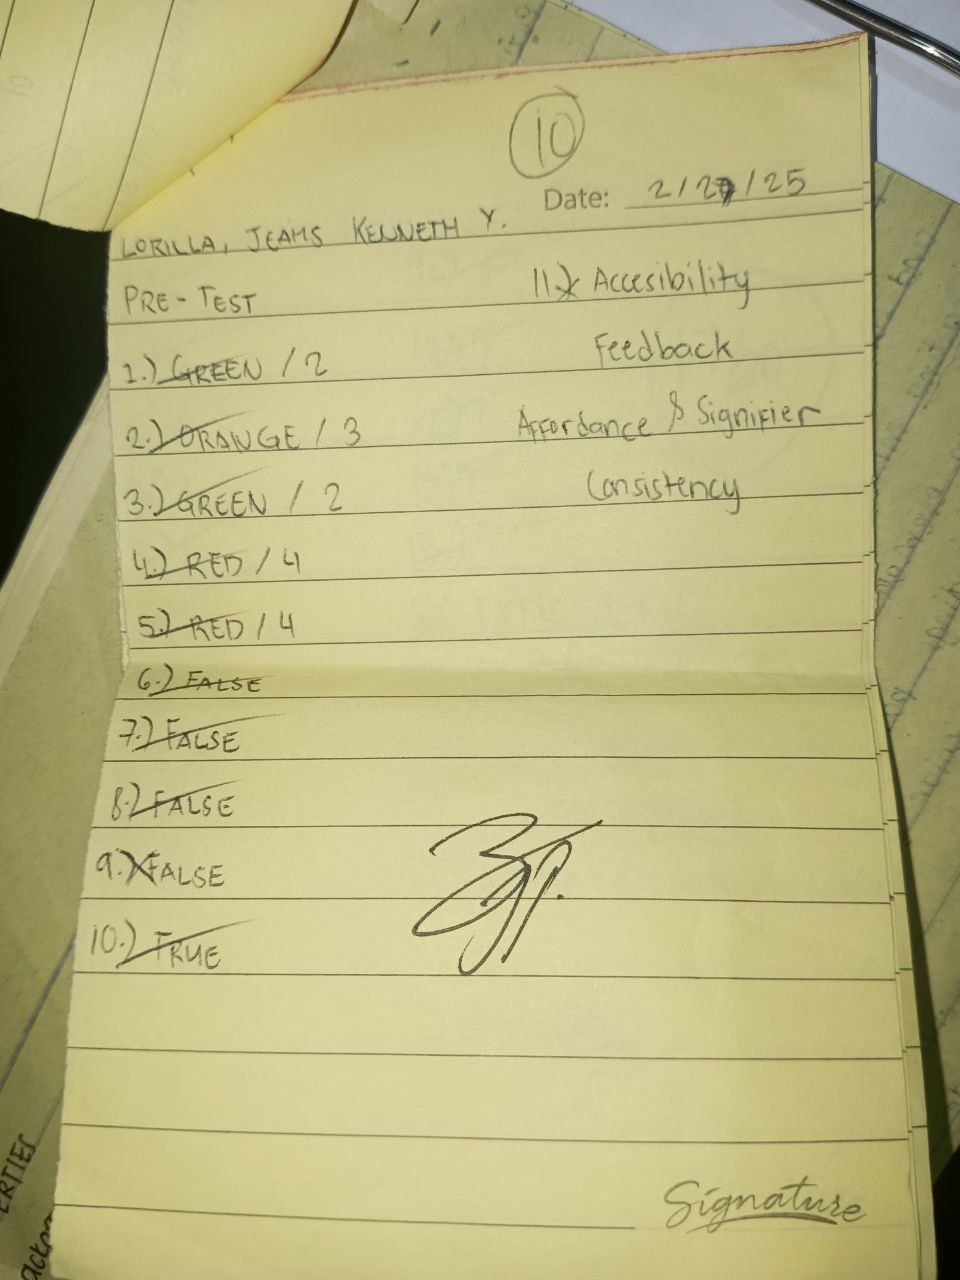 10
Date: 2/27/25
LORILLA, JEAMS KENNETH Y.
PRE-TEST
1.) GREEN / 2
2.) ORANGE / 3
3.) GREEN / 2
4.) RED / 4
5.) RED / 4
6.) FALSE
7.) FALSE
8.) FALSE
9.) FALSE
10.) TRUE
11.) Accesibility
Feedback
Affordance & Signifier
Consistency
Signature
ERTIES